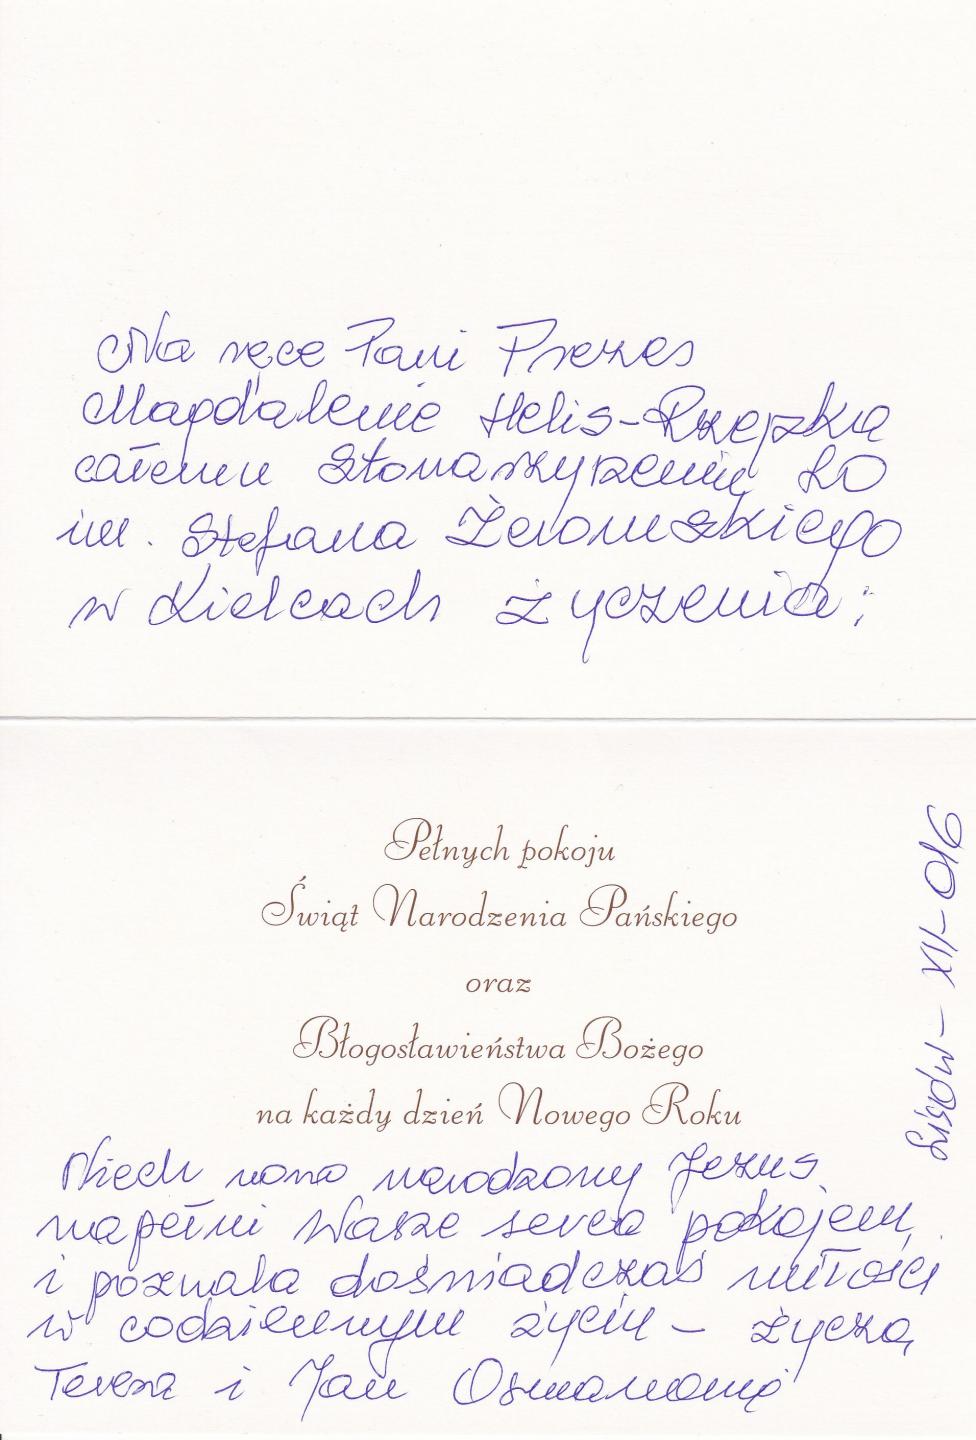 Na ręce Pani Prezes
Magdalenie Helis-Rzepzką
całemu Stowarzyszeniu LO
im. Stefana Żeromskiego
w Kielcach życzenia:
Pełnych pokoju
Świąt Narodzenia Pańskiego
oraz
Błogosławieństwa Bożego
na każdy dzień Nowego Roku
Niech nowo narodzony Jezus
napełni Wasze serca pokojem,
i pozwala doświadczać miłości
w codziennym życiu – życzą
Teresa i Jan
Lisów – XII – 016